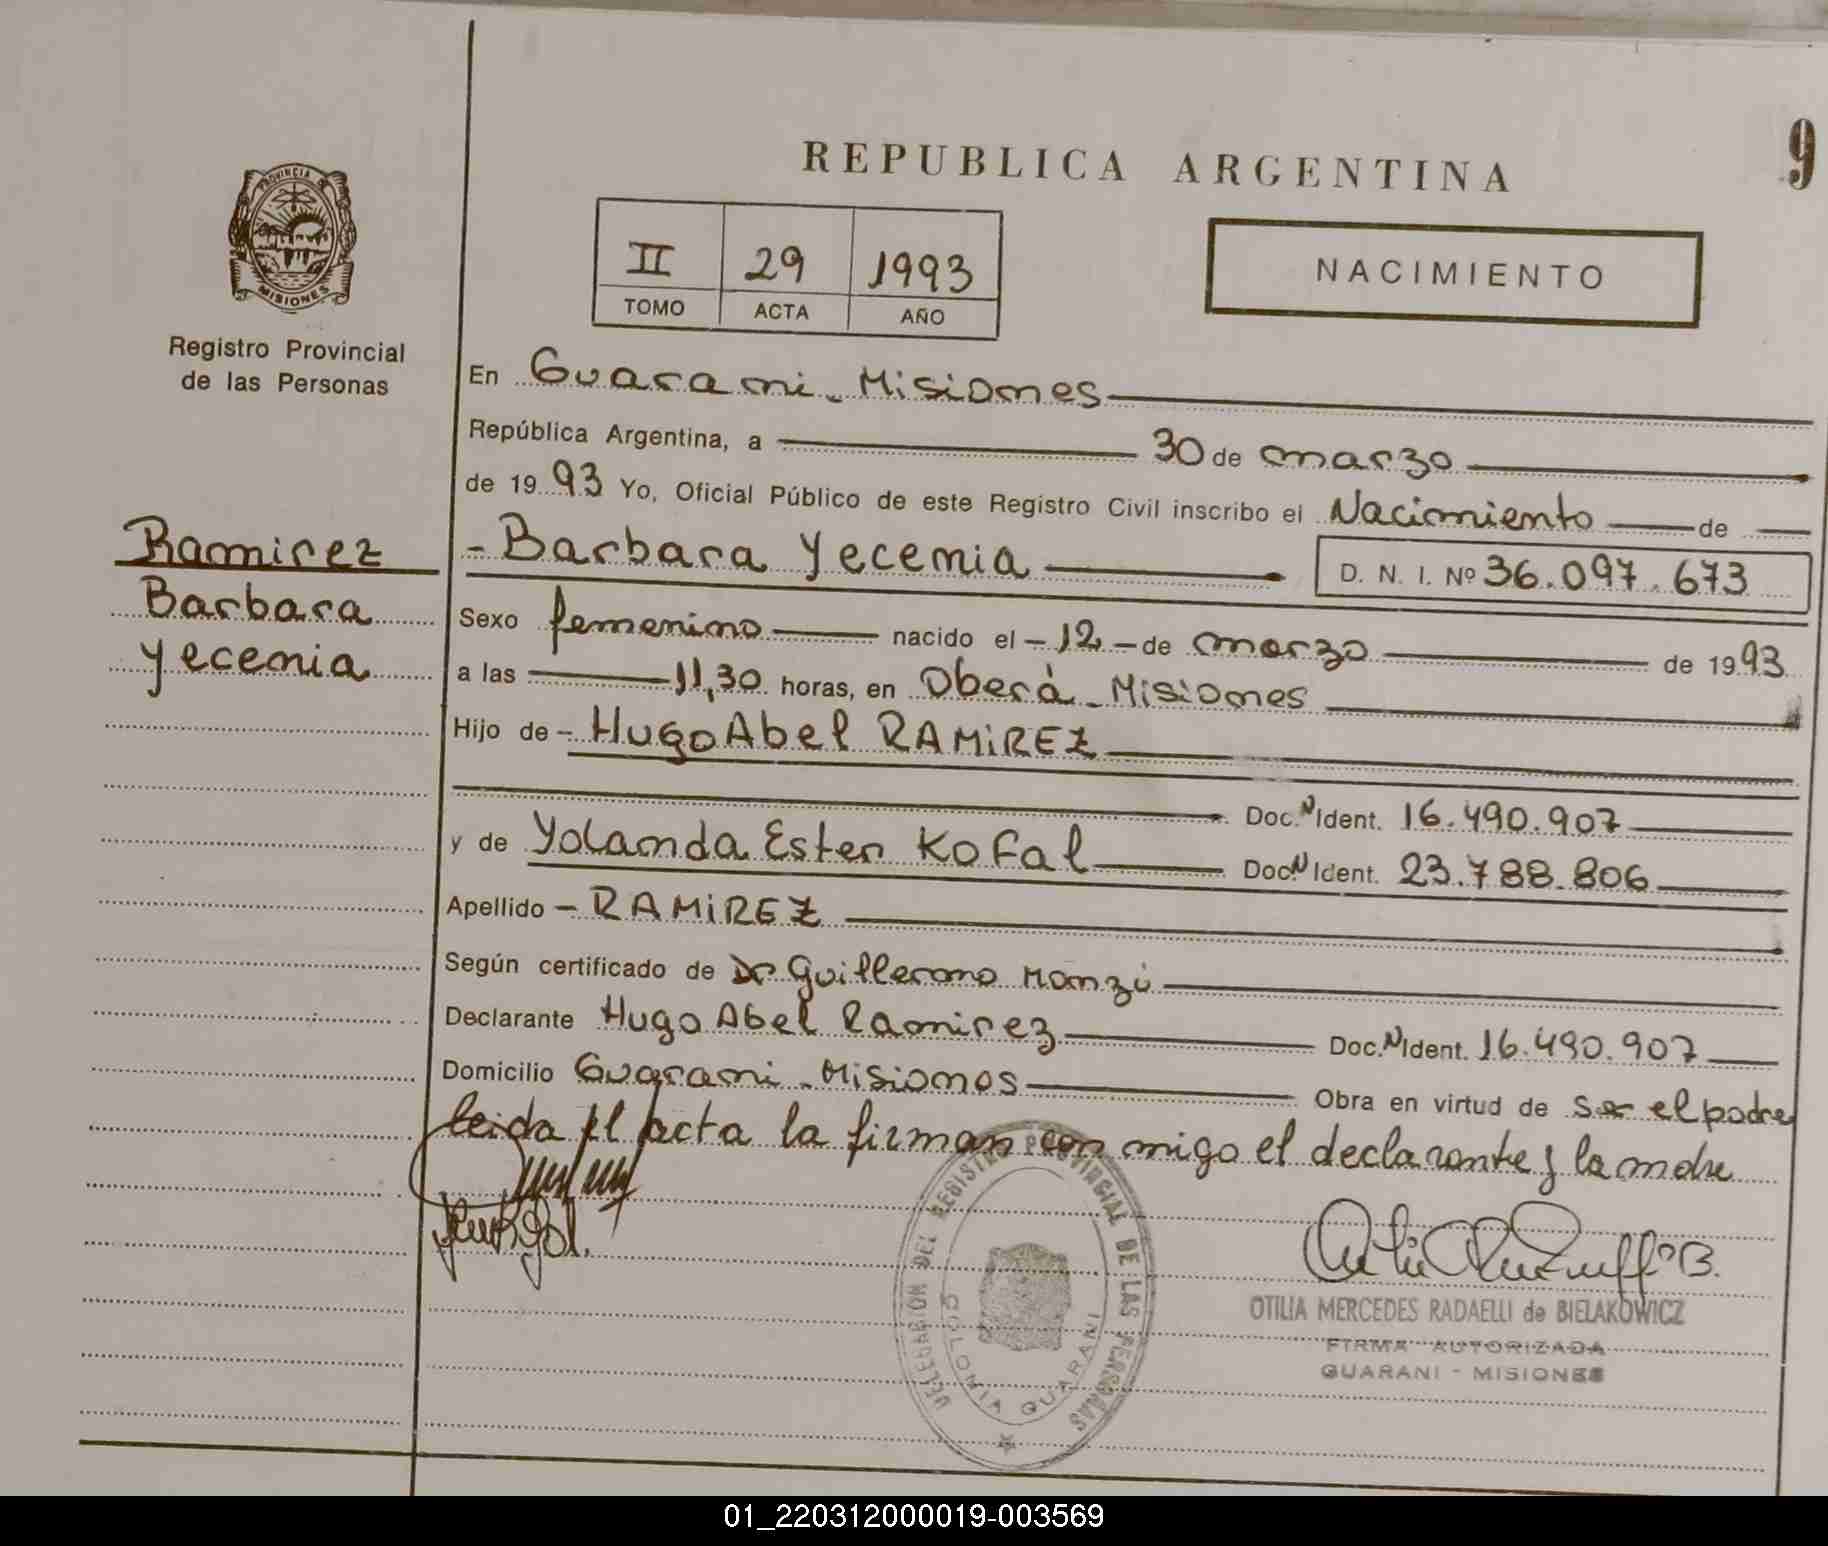 REPUBLICA ARGENTINA
9
PROVINCIA DE
MISIONES
Registro Provincial
de las Personas
II 29 1993
TOMO ACTA AÑO
NACIMIENTO
En Guarani - Misiones
República Argentina, a 30 de marzo
de 1993 Yo, Oficial Público de este Registro Civil inscribo el Nacimiento de
Ramirez
Barbara
Yecenia
- Barbara Yecenia D. N. I. Nº 36.097.673
Sexo femenino nacido el - 12 - de marzo de 1993
a las 11,30 horas, en Oberá - Misiones
Hijo de - Hugo Abel RAMIREZ
Doc. N Ident. 16.490.907
y de Yolanda Ester Kofal Doc. N Ident. 23.788.806
Apellido - RAMIREZ
Según certificado de Dr Guillermo Manzú
Declarante Hugo Abel Ramirez Doc. N Ident. 16.490.907
Domicilio Guarani - Misiones Obra en virtud de ser el padre
leida el acta la firman con migo el declarante y la madre
DELEGACION DEL REGISTRO PROVINCIAL DE LAS PERSONAS
COLONIA GUARANI
OTILIA MERCEDES RADAELLI de BIELAKOWICZ
FIRMA AUTORIZADA
GUARANI - MISIONES
01_220312000019-003569